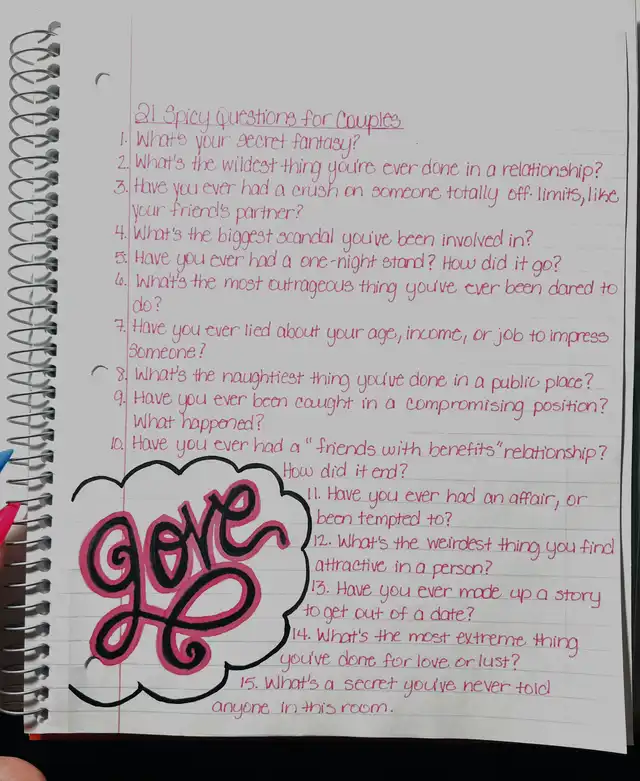 21 Spicy Questions for Couples
1. What's your secret fantasy?
2. What's the wildest thing you're ever done in a relationship?
3. Have you ever had a crush on someone totally off-limits, like
your friend's partner?
4. What's the biggest scandal you've been involved in?
5. Have you ever had a one-night stand? How did it go?
6. What's the most outrageous thing you've ever been dared to
do?
7. Have you ever lied about your age, income, or job to impress
someone?
8. What's the naughtiest thing you've done in a public place?
9. Have you ever been caught in a compromising position?
What happened?
10. Have you ever had a "friends with benefits" relationship?
How did it end?
11. Have you ever had an affair, or
been tempted to?
12. What's the weirdest thing you find
attractive in a person?
13. Have you ever made up a story
to get out of a date?
14. What's the most extreme thing
you've done for love or lust?
15. What's a secret you've never told
anyone in this room.
love